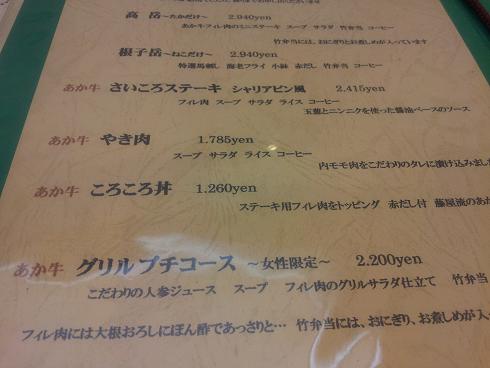 高 岳 ～たかだけ～ 2.940yen
あか牛フィレ肉のミニステーキ スープ サラダ 竹弁当 コーヒー
竹弁当には、おにぎりとお煮しめが入っています
根子岳 ～ねこだけ～ 2.940yen
特選馬刺し 海老フライ 小鉢 赤だし 竹弁当 コーヒー
あか牛 さいころステーキ シャリアピン風 2.415yen
フィレ肉 スープ サラダ ライス コーヒー
玉葱とニンニクを使った醤油ベースのソース
あか牛 やき肉 1.785yen
スープ サラダ ライス コーヒー
内モモ肉をこだわりのタレに漬け込みまし
あか牛 ころころ丼 1.260yen
ステーキ用フィレ肉をトッピング 赤だし付 藤屋流のあか
あか牛 グリルプチコース ～女性限定～ 2.200yen
こだわりの人参ジュース スープ フィレ肉のグリルサラダ仕立て 竹弁当
フィレ肉には大根おろしにぽん酢であっさりと… 竹弁当には、おにぎり、お煮しめが入